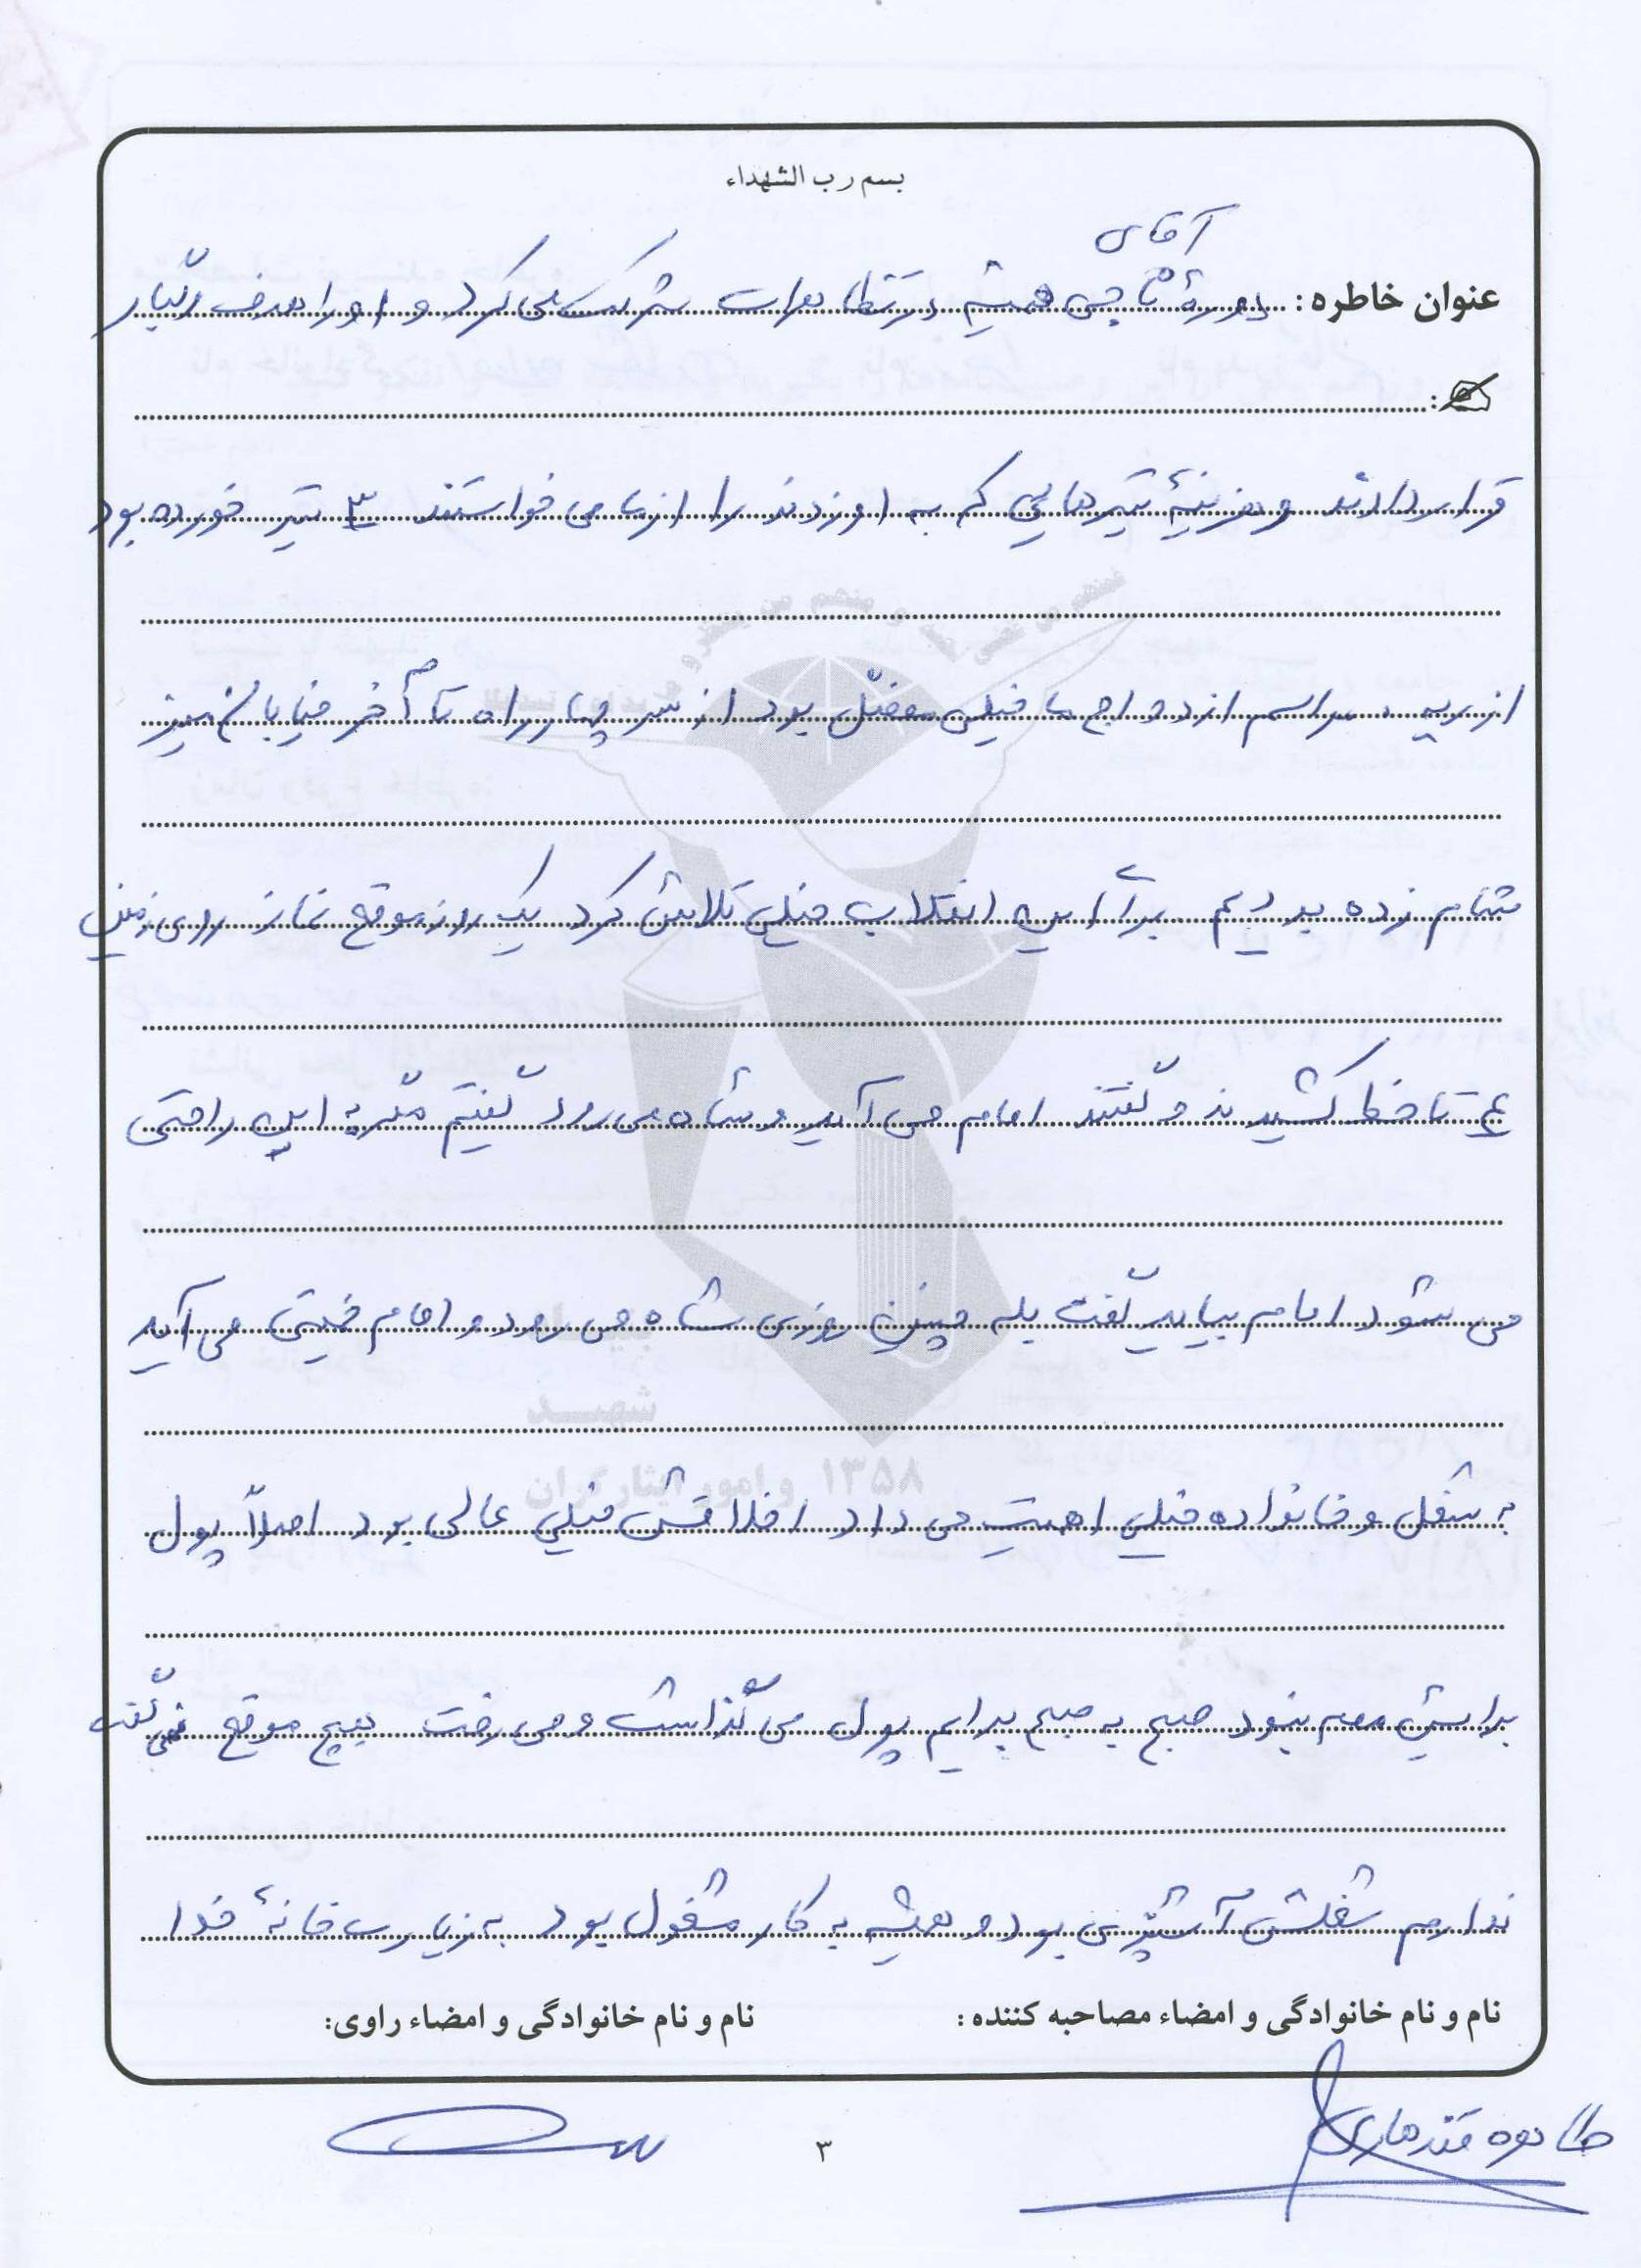 بسم رب الشهداء
آقای
عنوان خاطره: دوره همیشه در تظاهرات شرکت می کرد و او را هدف رگبار
قرار دادند و هزینهٔ تیرهایی که به او زدند را از ما می خواستند ۳ تیر خورده بود
از ریه مراسم ازدواج ما خیلی مفصل بود از سر چهارراه تا آخر خیابان میز
شام زده بودیم برای این انقلاب خیلی تلاش کرد یک روز موقع نماز روی زمین
تا خط کشیدند و گفتند امام می آید و شاه می رود گفتیم مگر به این راحتی
می شود امام بیاید گفت بله چنین روزی شاه می رود و امام خمینی می آید
به شغل و خانواده خیلی اهمیت می داد اخلاقش خیلی عالی بود اصلاً پول
برایش مهم نبود صبح به صبح برایم پول می گذاشت و می رفت هیچ موقع نمی گفت
ندارم شغلش آشپزی بود و همیشه به کار مشغول بود به زیارت خانهٔ خدا
نام و نام خانوادگی و امضاء مصاحبه کننده: نام و نام خانوادگی و امضاء راوی:
طاهره قندهاری
۳
۱۳۵۸
و امور ایثارگران